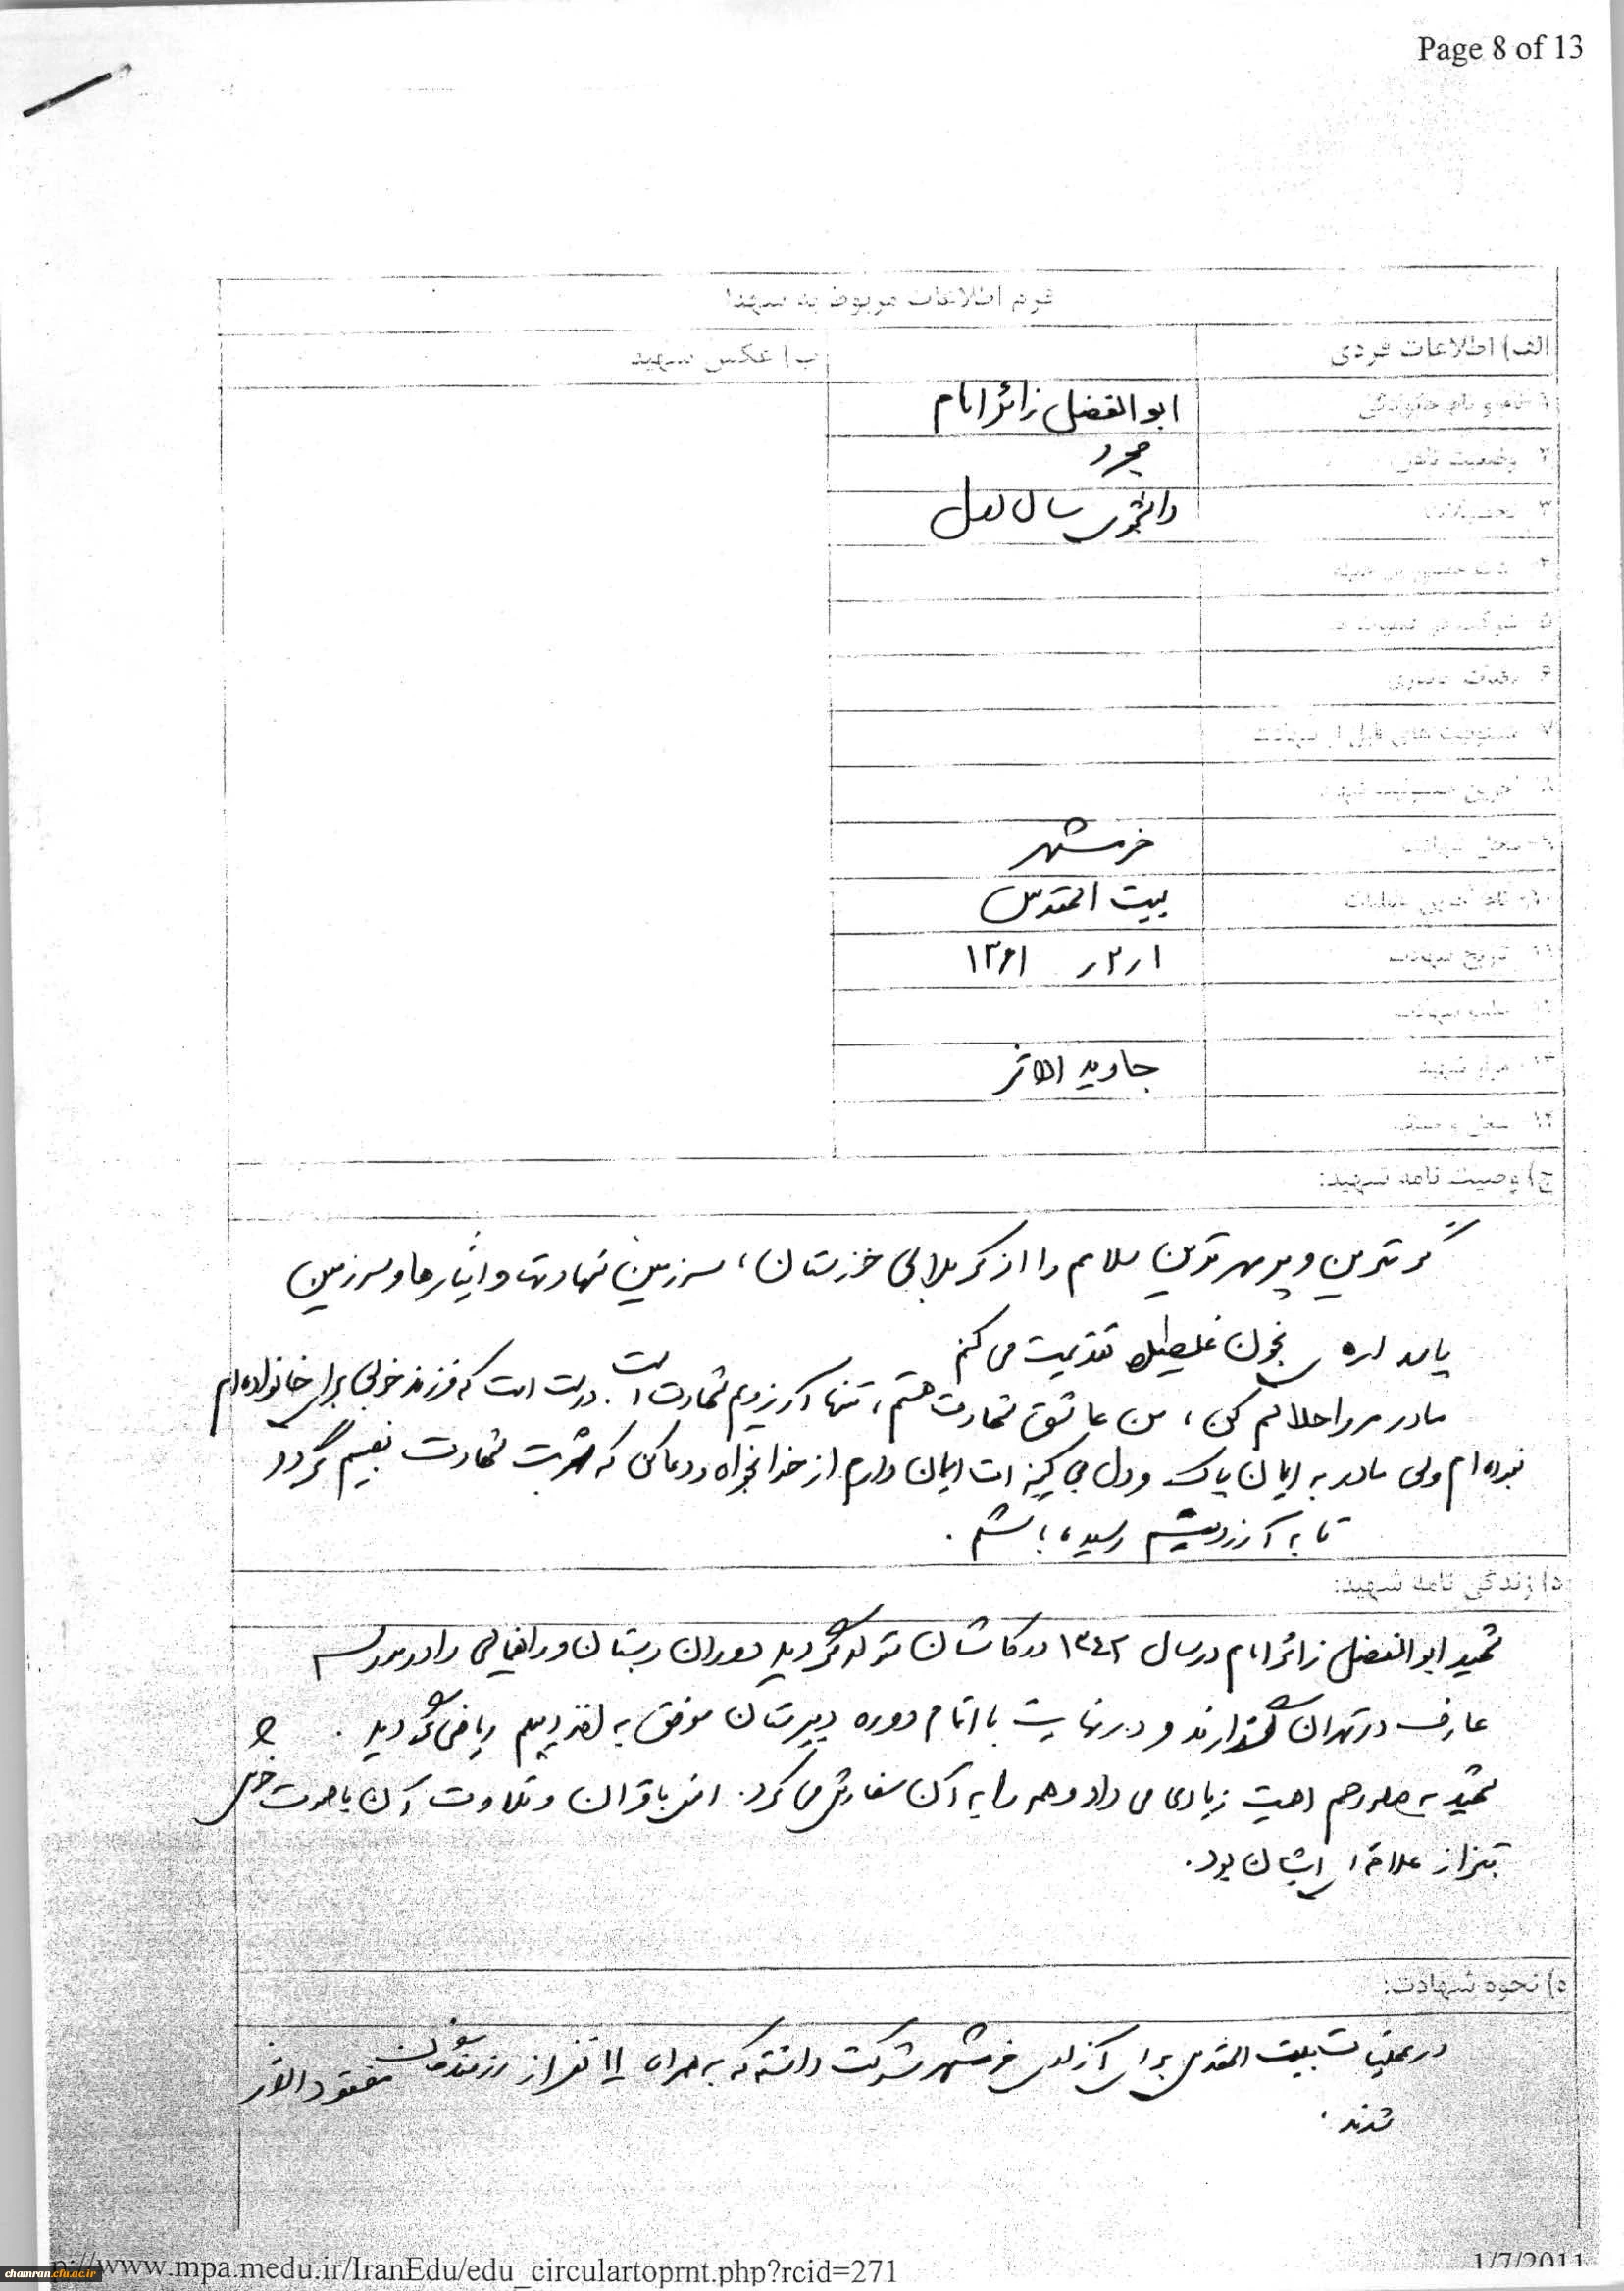 Page 8 of 13
فرم اطلاعات مربوط به شهدا
الف) اطلاعات فردی
ب) عکس شهید
۱- نام و نام خانوادگی
ابوالفضل زائر امام
۲- وضعیت تاهل
مجرد
۳- تحصیلات
دانشجوی سال اول
خرمشهر
بیت المقدس
۱ر۲ر ۱۳۶۱
جاوید الاثر
ج) وصیت نامه شهید:
گرمترین و پرمهرترین سلامم را از کربلای خوزستان، سرزمین شهادتها و ایثارها و سرزمین
بخون غلطیده تقدیمت می کنم
مادر مرا حلالم کن، من عاشق شهادت هستم، تنها آرزویم شهادت است. درست است که فرزند خوبی برای خانواده ام
نبوده ام ولی مادر به ایمان پاک و دل بی کینه ات ایمان دارم از خدا بخواه و دعا کن که شربت شهادت نصیبم گردد
تا به آرزویم رسیده باشم.
د) زندگی نامه شهید:
شهید ابوالفضل زائر امام در سال ۱۳۴۲ در کاشان متولد گردید دوران دبستان و راهنمایی را در مدرسه
عارف در تهران گذراند و در نهایت با اتمام دوره دبیرستان موفق به اخذ دیپلم ریاضی گردید.
شهید به صله رحم اهمیت زیادی می داد و همه را به آن سفارش می کرد. انس با قرآن و تلاوت آن با صوت خوش
نیز از علاقه ایشان بود.
ه) نحوه شهادت:
در عملیات بیت المقدس برای آزادی خرمشهر شرکت داشته که به همراه ۱۱ نفر از رزمندگان مفقود الاثر
شدند.
p://www.mpa.medu.ir/IranEdu/edu_circulartoprnt.php?rcid=271
1/7/2011
chamran.cfu.ac.ir